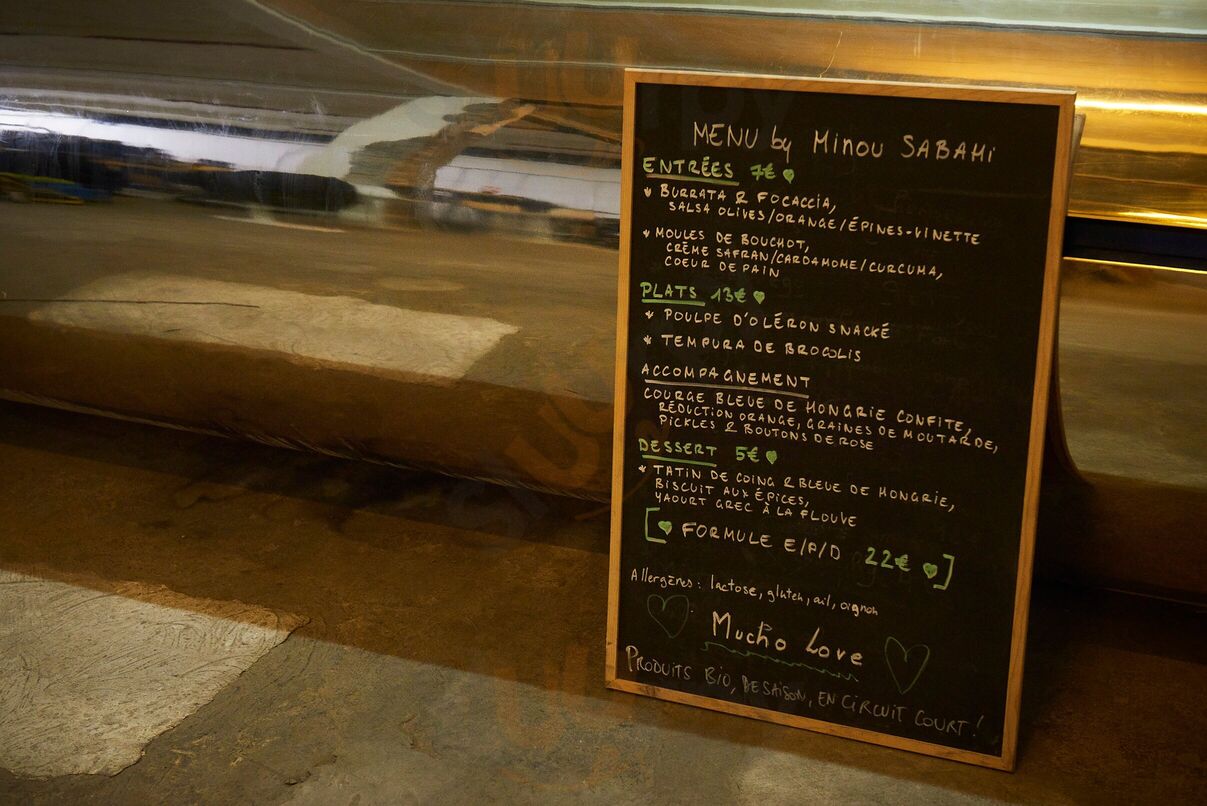 MENU by Minou SABAHi
ENTRÉES 7€
BURRATA & FOCACCIA,
SALSA OLIVES/ORANGE/ÉPINES-VINETTE
MOULES DE BOUCHOT,
CRÈME SAFRAN/CARDAMOME/CURCUMA,
COEUR DE PAIN
PLATS 13€
POULPE D'OLÉRON SNACKÉ
TEMPURA DE BROCOLIS
ACCOMPAGNEMENT
COURGE BLEUE DE HONGRIE CONFITE,
RÉDUCTION ORANGE, GRAINES DE MOUTARDE,
PICKLES & BOUTONS DE ROSE
DESSERT 5€
TATIN DE COING & BLEUE DE HONGRIE,
BISCUIT AUX ÉPICES,
YAOURT GREC À LA FLOUVE
[ FORMULE E/P/D 22€ ]
Allergènes : lactose, gluten, ail, oignon
Mucho Love
PRODUITS BIO, DE SAISON, EN CIRCUIT COURT !